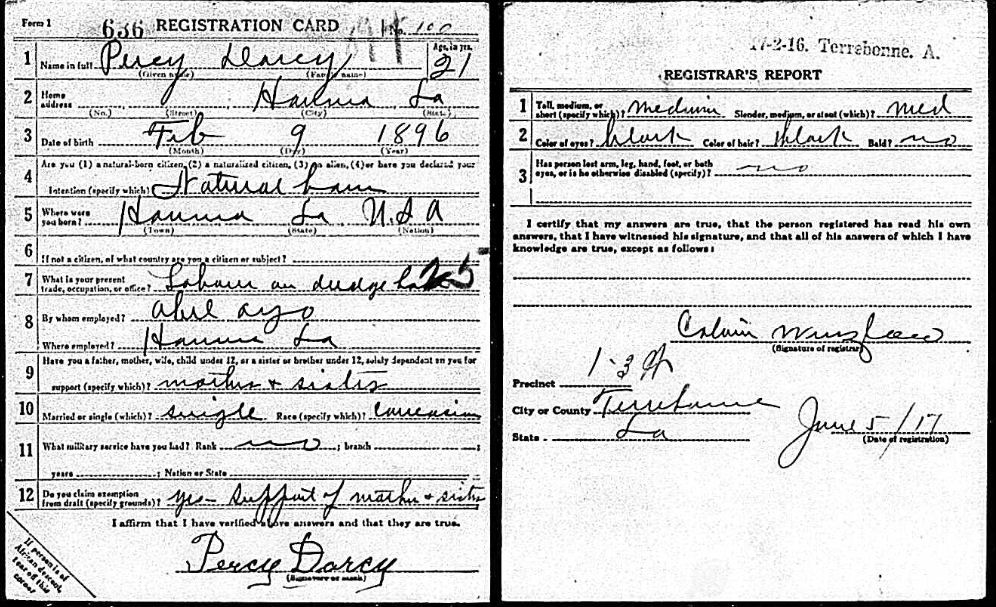 Form 1 636 REGISTRATION CARD No. 100
1 Name in full Percy Darcy Age, in yrs. 21
(Given name) (Family name)
2 Home address Houma La
(No.) (Street) (City) (State)
3 Date of birth Feb 9 1896
(Month) (Day) (Year)
4 Are you (1) a natural-born citizen, (2) a naturalized citizen, (3) an alien, (4) or have you declared your
intention (specify which)? Natural born
5 Where were you born? Houma La U.S.A
(Town) (State) (Nation)
6 If not a citizen, of what country are you a citizen or subject?
7 What is your present trade, occupation, or office? Labour on dredge boat 25
8 By whom employed? Abel Ayo
Where employed? Houma La
9 Have you a father, mother, wife, child under 12, or a sister or brother under 12, solely dependent on you for
support (specify which)? mother & sister
10 Married or single (which)? single Race (specify which)? Caucasian
11 What military service have you had? Rank no ; branch ;
years ; Nation or State
12 Do you claim exemption from draft (specify grounds)? yes - support of mother & sister
I affirm that I have verified above answers and that they are true.
Percy Darcy
(Signature or mark)
If person is of African descent, tear off this corner
17-2-16. Terrebonne. A.
REGISTRAR'S REPORT
1 Tall, medium, or short (specify which)? medium Slender, medium, or stout (which)? med
2 Color of eyes? black Color of hair? black Bald? no
3 Has person lost arm, leg, hand, foot, or both eyes, or is he otherwise disabled (specify)? no
I certify that my answers are true, that the person registered has read his own
answers, that I have witnessed his signature, and that all of his answers of which I have
knowledge are true, except as follows:
Calvin
(Signature of registrar)
Precinct 1-3
City or County Terrebonne
State La
June 5/17
(Date of registration)